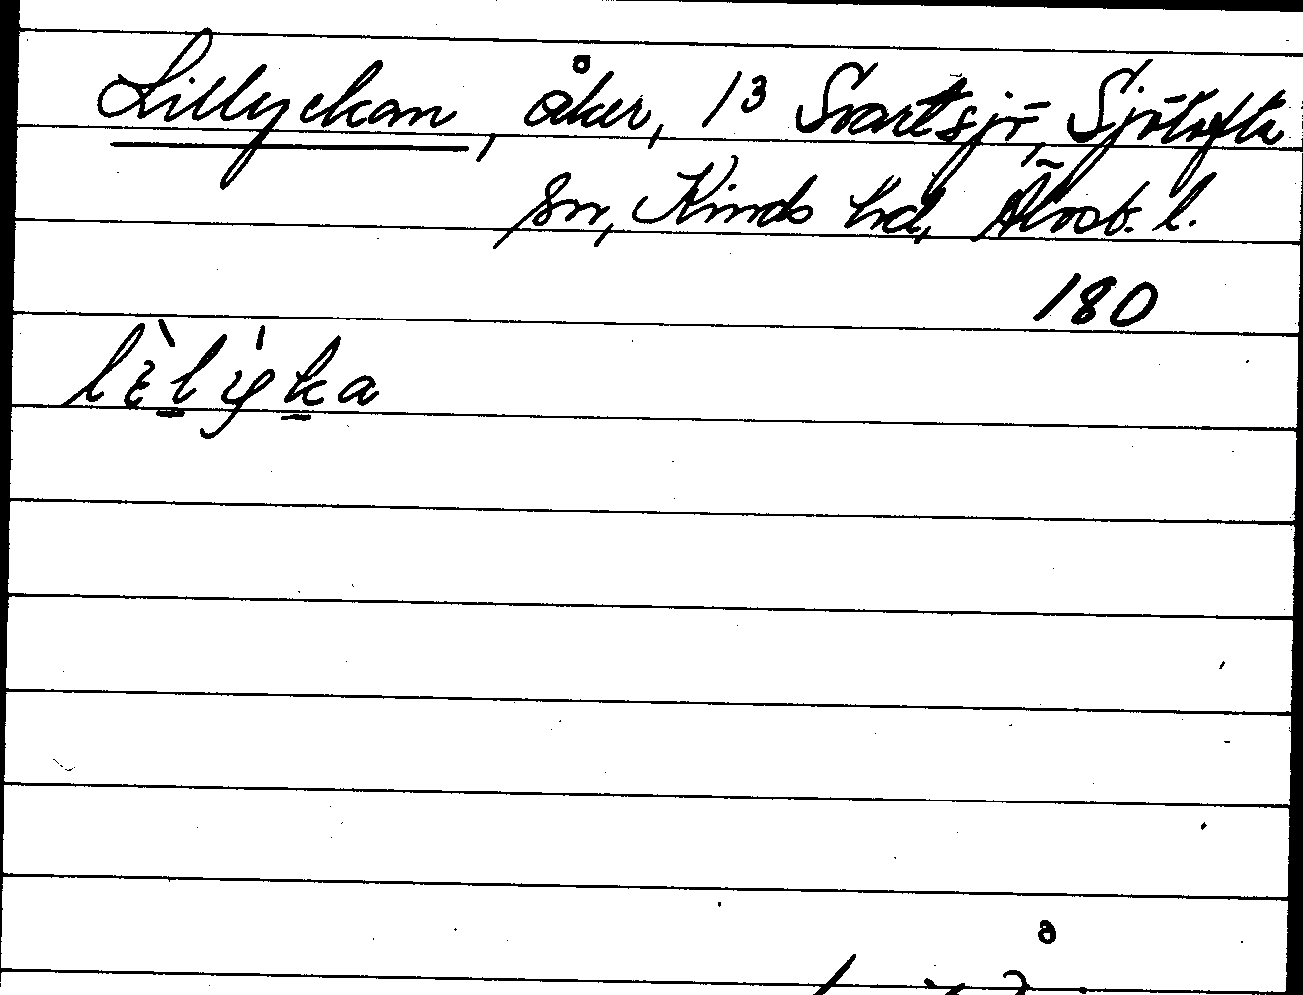 Lillyckan, åker, 13 Svartsjö, Sjötofta
sn, Kinds hd, Älvsb. l.
180